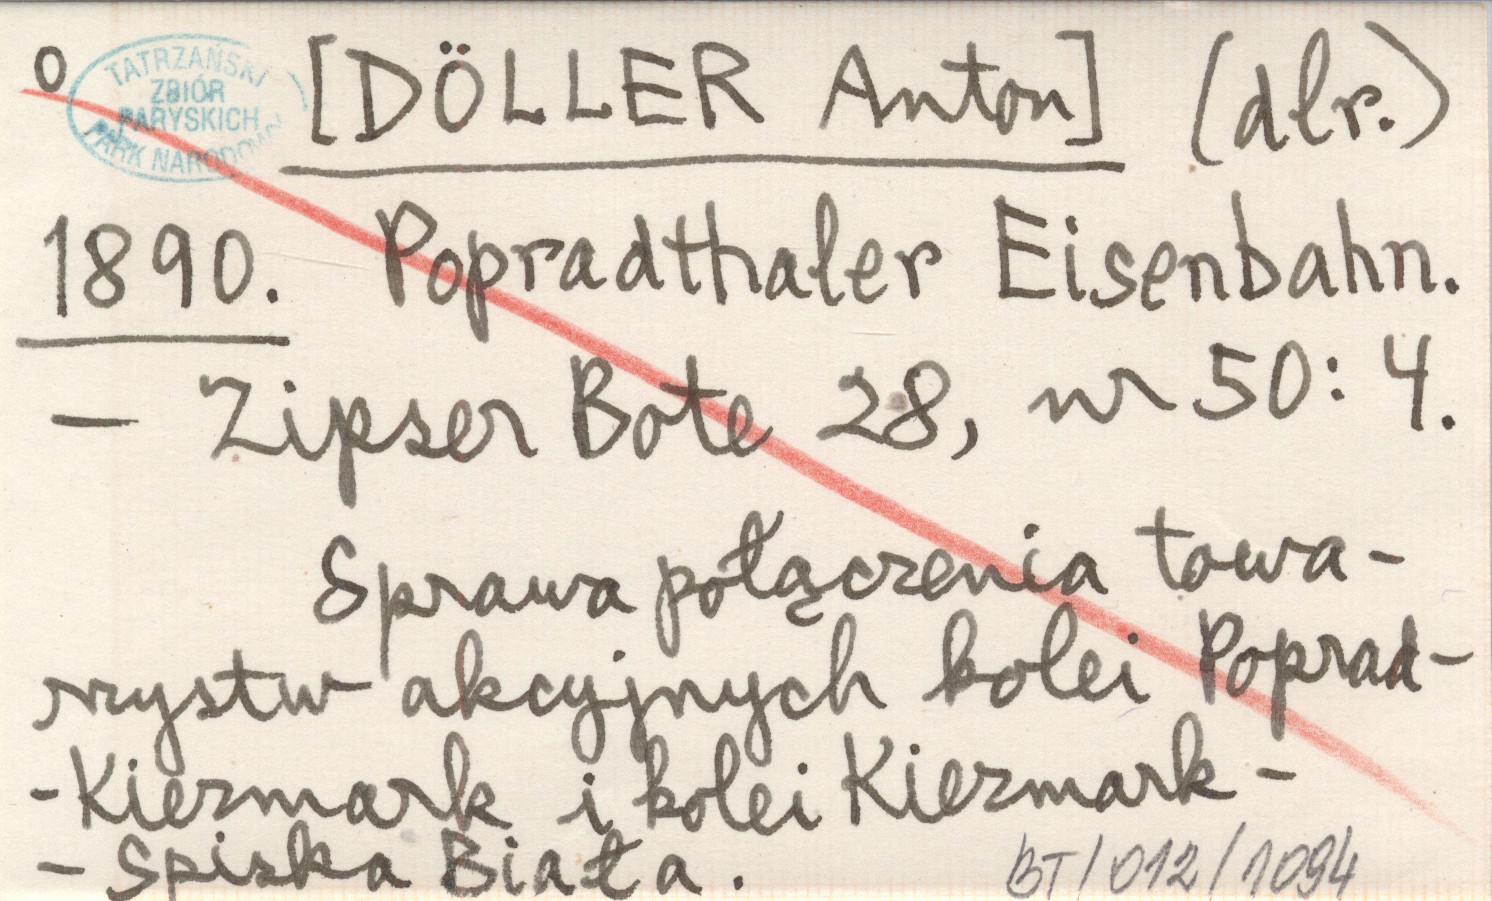 o
TATRZAŃSKI
ZBIÓR
PARYSKICH
PARK NARODOWY
[DÖLLER Anton] (dlr.)
1890. Popradthaler Eisenbahn.
— Zipser Bote 28, nr 50: 4.
Sprawa połączenia towa-
rzystw akcyjnych kolei Poprad-
-Kiezmark i kolei Kiezmark-
- Spiska Biała.
BT/012/1094